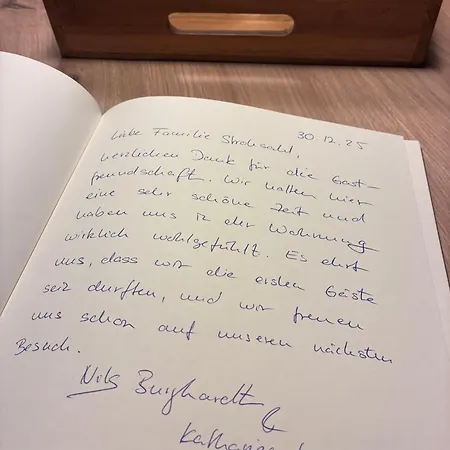 30.12.25
Liebe Familie Strohsahl,
herzlichen Dank für die Gast-
freundschaft. Wir hatten hier
eine sehr schöne Zeit und
haben uns in der Wohnung
wirklich wohlgefühlt. Es ehrt
uns, dass wir die ersten Gäste
sein durften, und wir freuen
uns schon auf unseren nächsten
Besuch.
Nils Burghardt
&